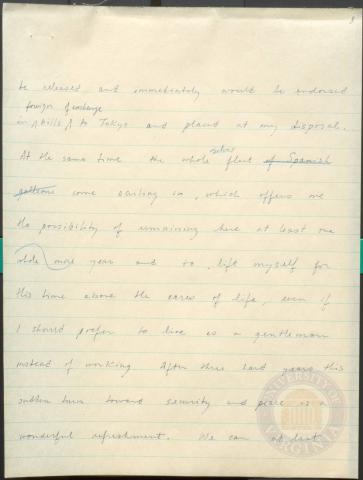 9
be released and immediately would be endorsed
foreign of exchange
in bills to Tokyo and placed at my disposal.
silver
At the same time the whole fleet of Spanish
galleons come sailing in, which offers me
the possibility of remaining here at least one
whole more year and to lift myself for
this time above the cares of life, even if
I should prefer to live as a gentleman
instead of working. After three hard years this
sudden turn toward security and peace is a
wonderful refreshment. We can at last
UNIVERSITY OF VIRGINIA